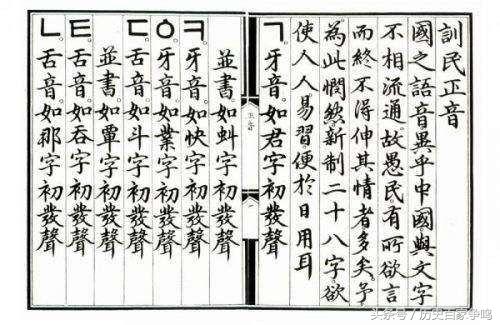 訓民正音
國之語音異乎中國與文字
不相流通。故愚民有所欲言
而終不得伸其情者多矣。予
為此憫然。新制二十八字。欲
使人人易習。便於日用耳
ㄱ。牙音。如君字初發聲
並書。如蚪字初發聲
ㅋ。牙音。如快字初發聲
ㆁ。牙音。如業字初發聲
ㄷ。舌音。如斗字初發聲
並書。如覃字初發聲
ㅌ。舌音。如呑字初發聲
ㄴ。舌音。如那字初發聲
头条号 / 历史百家争鸣